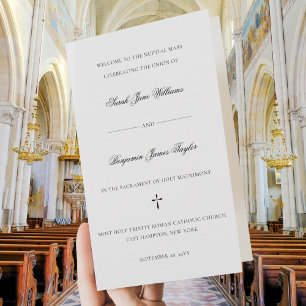 WELCOME TO THE NUPTIAL MASS
CELEBRATING THE UNION OF
Sarah Jane Williams
AND
Benjamin James Taylor
IN THE SACRAMENT OF HOLY MATRIMONY
MOST HOLY TRINITY ROMAN CATHOLIC CHURCH
EAST HAMPTON, NEW YORK
SEPTEMBER, 10, 20YY